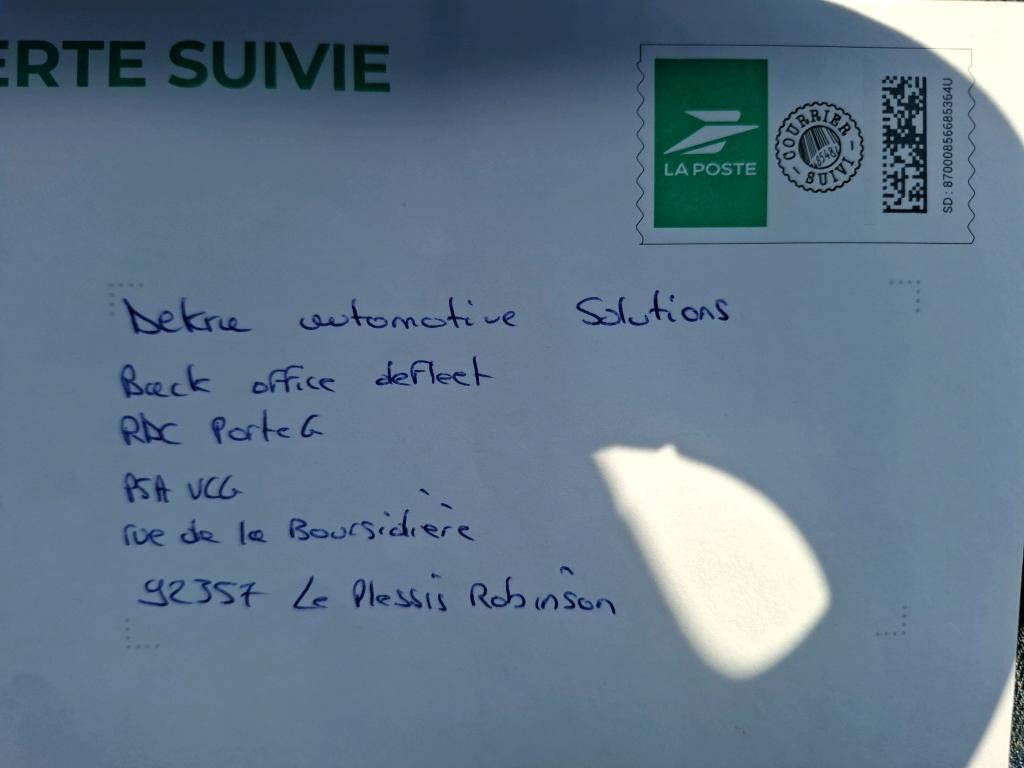 ERTE SUIVIE
LA POSTE
COURRIER
SUIVI
SD : 87000856685364U
Dekra automotive Solutions
Back office defleet
RDC Porte G
PSA VCG
rue de la Boursidière
92357 Le Plessis Robinson